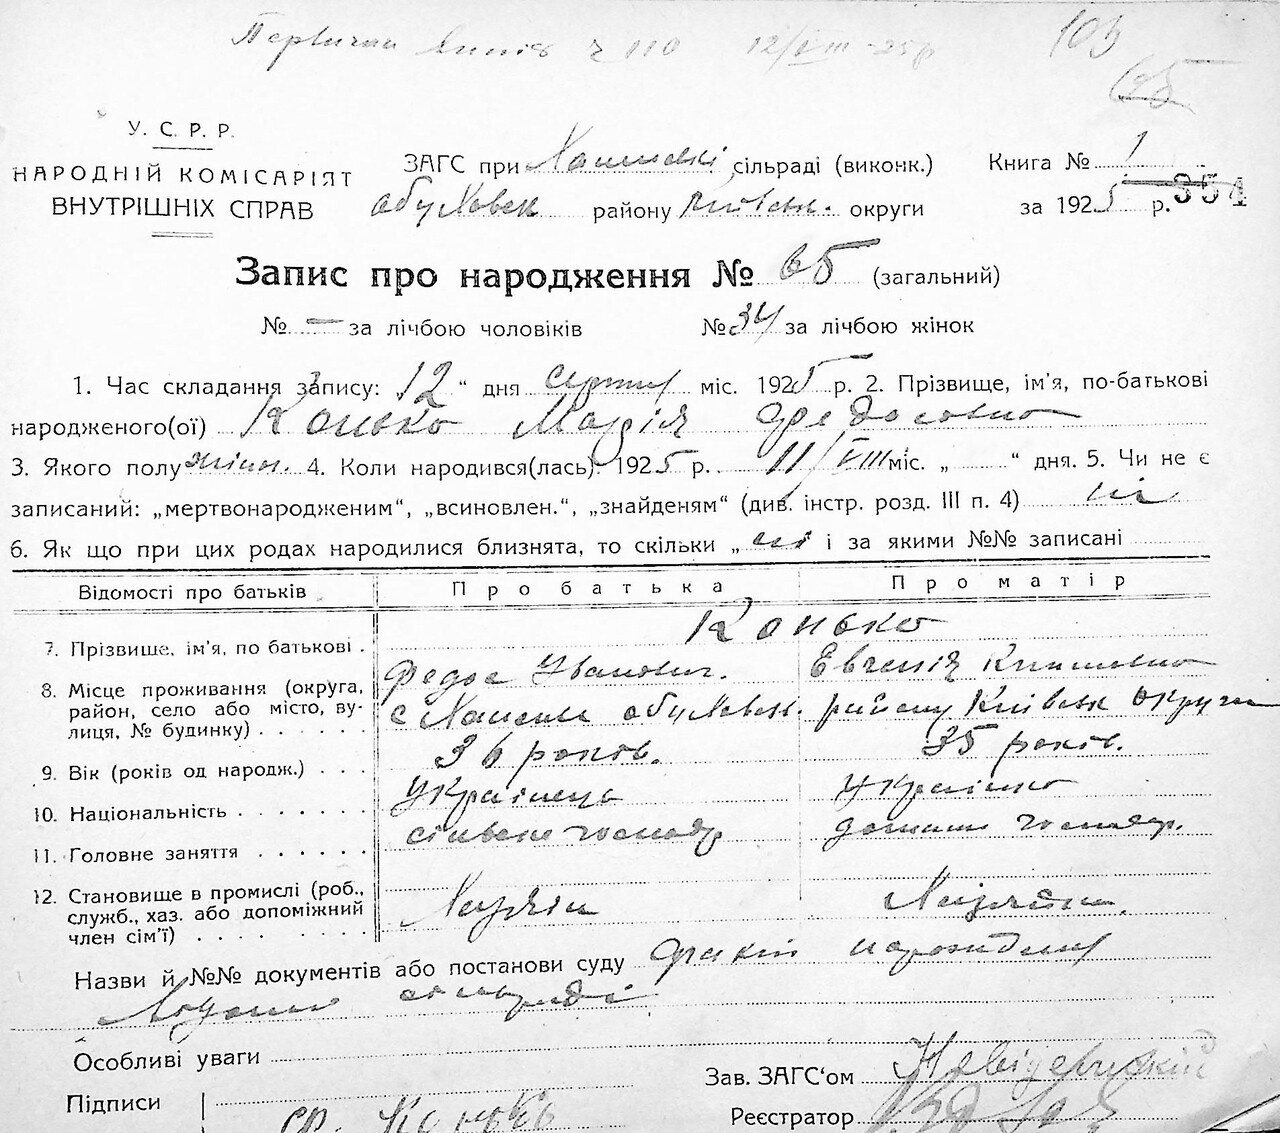 110 12/VIII-25р
103
65
У. С. Р. Р.
НАРОДНІЙ КОМІСАРІЯТ
ВНУТРІШНІХ СПРАВ
ЗАГС при сільраді (виконк.)
Обуховськ району Київськ. округи
Книга № 1
за 1925 р. 354
Запис про народження № 65 (загальний)
№ — за лічбою чоловіків № 34 за лічбою жінок
1. Час складання запису: 12 “ дня серпня міс. 1925 р. 2. Прізвище, ім'я, по-батькові
народженого(ої) Конько Марія Федосовна
3. Якого полу жіноч. 4. Коли народився(лась): 1925 р. 11/VIII міс. „ “ дня. 5. Чи не є
записаний: „мертвонародженим“, „всиновлен.“, „знайденям“ (див. інстр. розд. III п. 4) ні
6. Як що при цих родах народилися близнята, то скільки „ ні і за якими №№ записані
Відомості про батьків Про батька Про матір
7. Прізвище, ім'я, по батькові . Конько
Федос Иванович. Евгенія Климовна
8. Місце проживання (округа, район, село або місто, вулиця, № будинку) . . . . . . с Обуховськ. району Київськ Округи
9. Вік (років од народж.) . . . 36 років. 35 років.
10. Національність . . . . . . . Українець Українка
11. Головне заняття . . . . . . сільське господар домашн господар.
12. Становище в промислі (роб., служб., хаз. або допоміжний член сім'ї) . . . . . . Хазяін Хазяйка.
Назви й №№ документів або постанови суду
сільради
Особливі уваги
Зав. ЗАГС'ом
Підписи Ф. Конько
Реєстратор